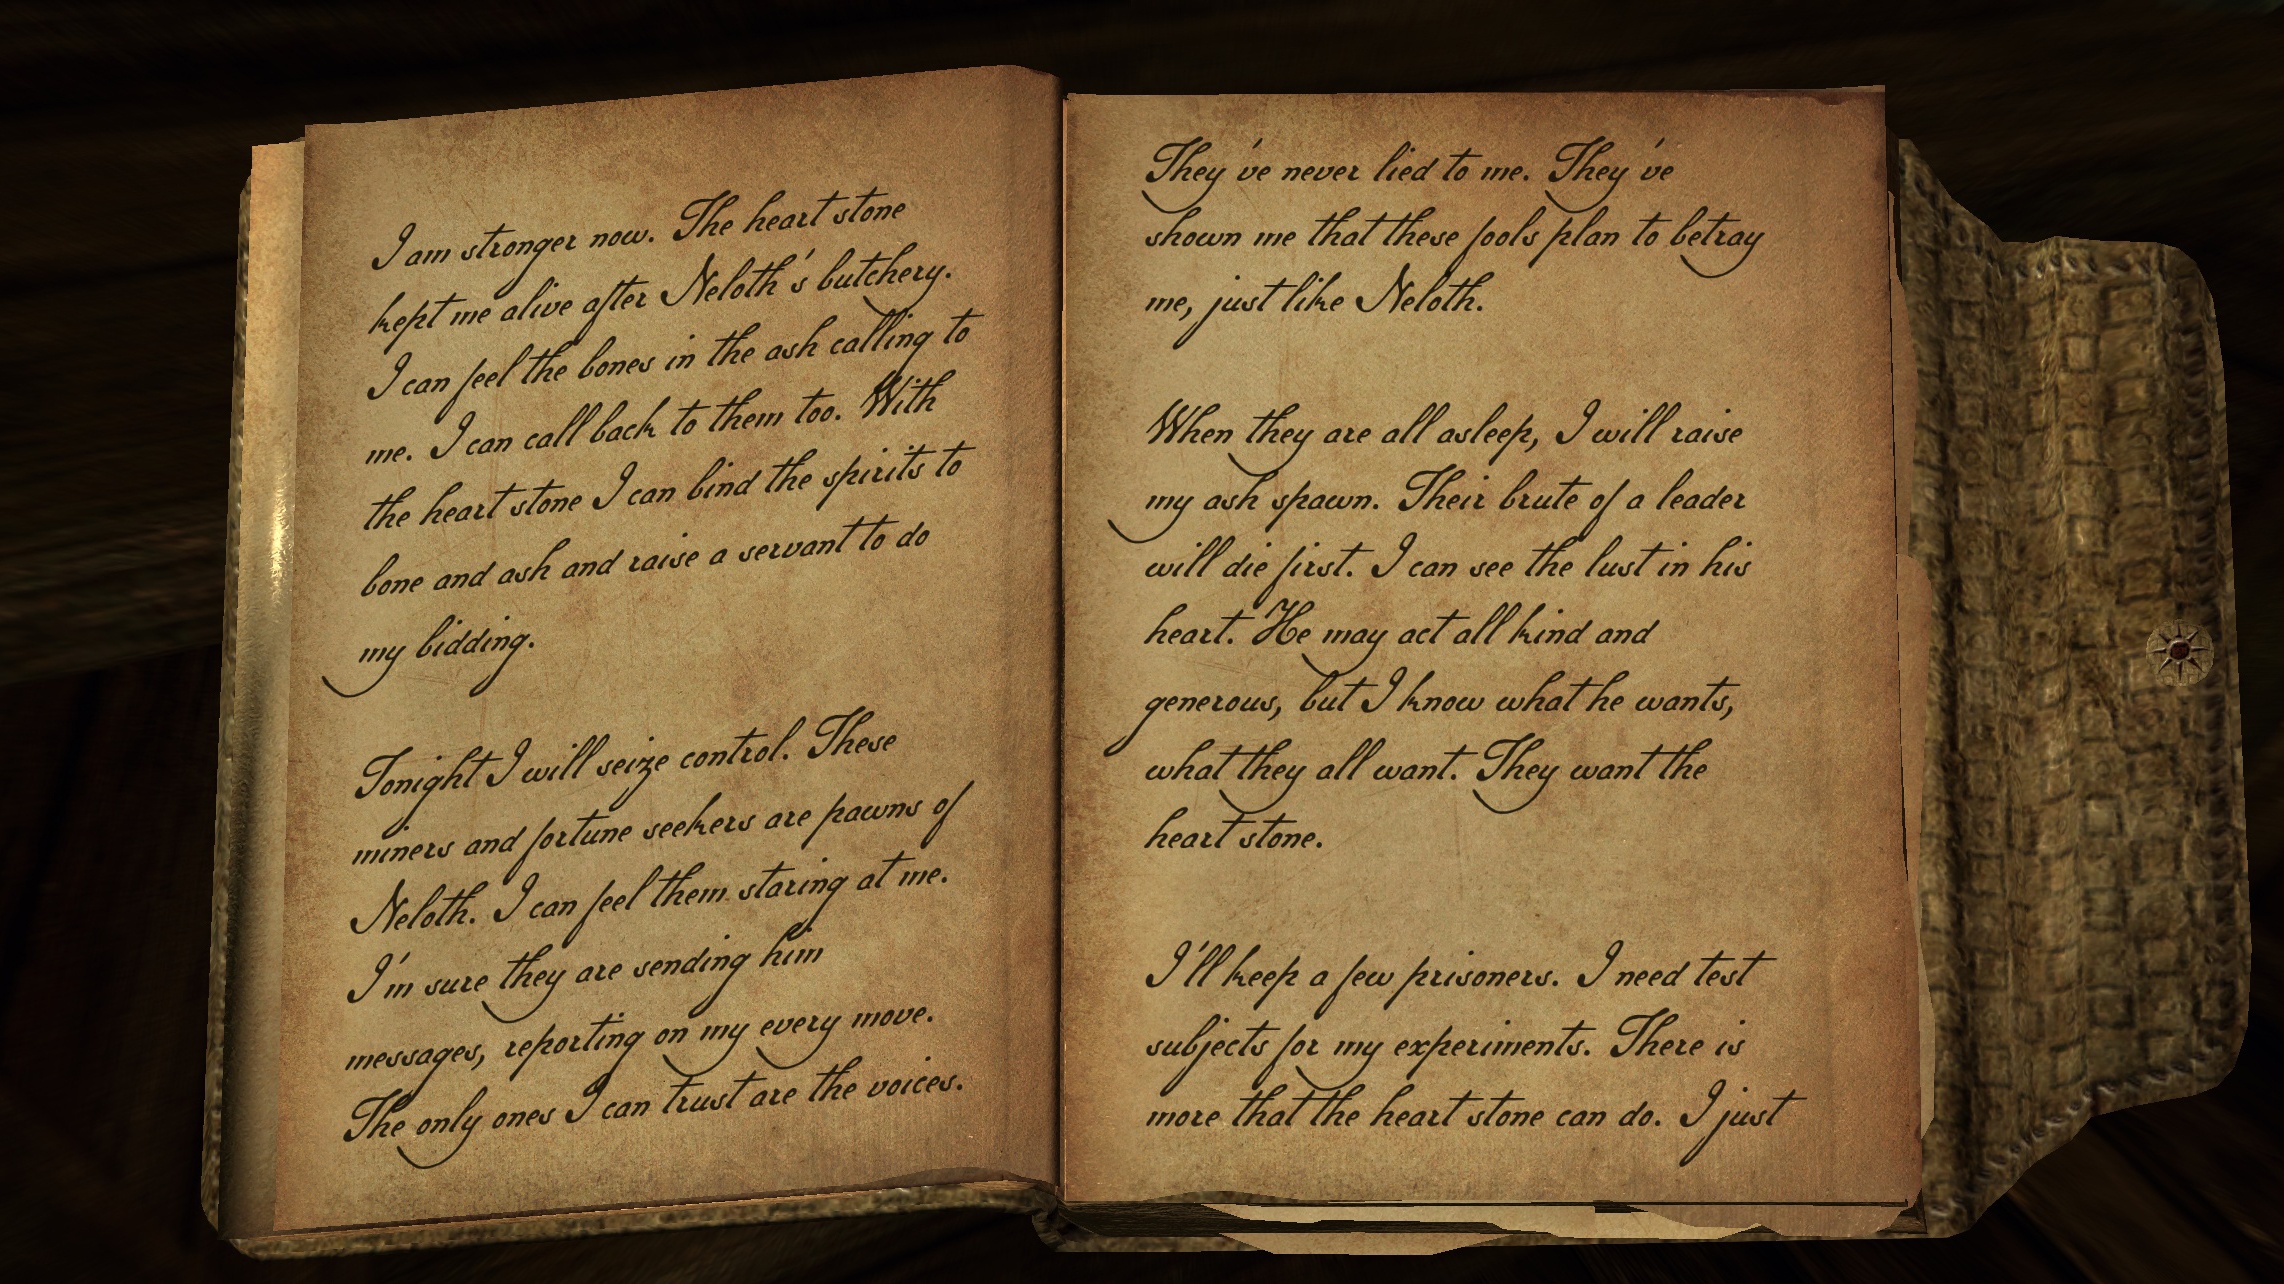 I am stronger now. The heart stone
kept me alive after Neloth's butchery.
I can feel the bones in the ash calling to
me. I can call back to them too. With
the heart stone I can bind the spirits to
bone and ash and raise a servant to do
my bidding.
Tonight I will seize control. These
miners and fortune seekers are pawns of
Neloth. I can feel them staring at me.
I'm sure they are sending him
messages, reporting on my every move.
The only ones I can trust are the voices.
They've never lied to me. They've
shown me that these fools plan to betray
me, just like Neloth.
When they are all asleep, I will raise
my ash spawn. Their brute of a leader
will die first. I can see the lust in his
heart. He may act all kind and
generous, but I know what he wants,
what they all want. They want the
heart stone.
I'll keep a few prisoners. I need test
subjects for my experiments. There is
more that the heart stone can do. I just